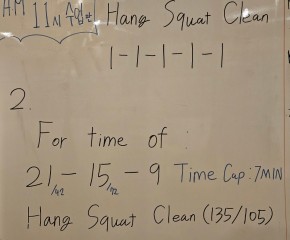 Hang Squat Clean
1-1-1-1-1
2.
For time of :
21 - 15 - 9 Time Cap: 7MIN
Hang Squat Clean (135/105)